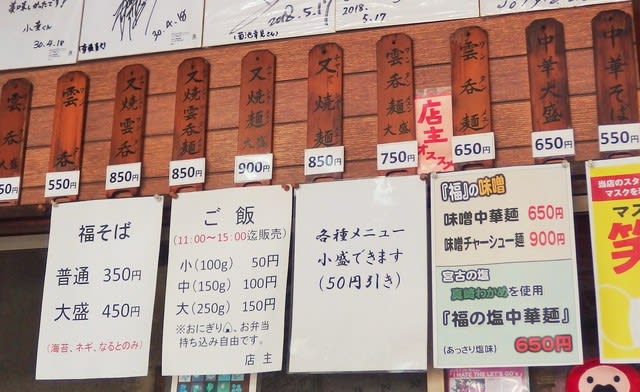 小薫くん
30.4.18
30.4.18
2018.5.17
2018
5.17
中華そば
550円
中華大盛
650円
雲呑麺
650円
店主
オススメ
雲呑麺
大盛
750円
叉焼麺
850円
叉焼麺
大盛
900円
叉焼雲呑
850円
叉焼雲呑
850円
雲呑
550円
雲呑
50円
福そば
普通 350円
大盛 450円
(海苔、ネギ、なるとのみ)
ご飯
(11:00~15:00迄販売)
小(100g) 50円
中(150g) 100円
大(250g) 150円
※おにぎり🍙、お弁当
持ち込み自由です。
店主
各種メニュー
小盛できます
(50円引き)
『福』の味噌
味噌中華麺 650円
味噌チャーシュー麺 900円
宮古の塩
真崎わかめを使用
『福の塩中華麺』
(あっさり塩味) 650円
当店のスタ
マスクを
マス
笑
I HATE THE LET'S go's